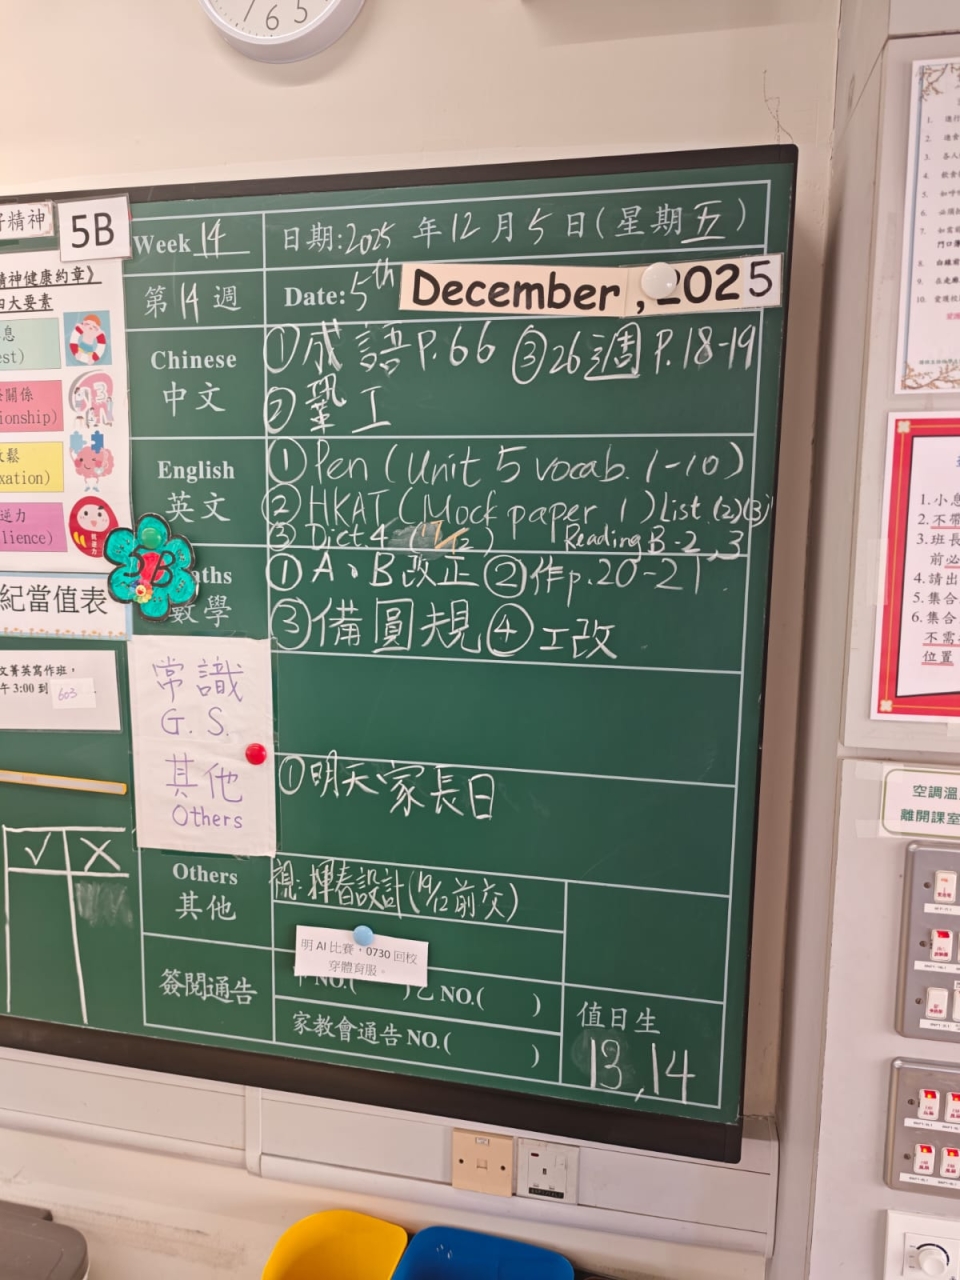 7 6 5
好精神
5B
Week 14
日期:2025 年 12 月 5 日(星期五)
第 14 週
Date: 5th December, 2025
精神健康約章》
四大要素
Chinese
中文
①成語 P.66 ③26週 P.18-19
②鞏工
English
英文
①Pen (Unit 5 vocab. 1-10)
②HKAT (Mock paper 1) List (2)(3)
③Dict. 4
Reading B-2,3
5B
數學
①A、B改正 ②作p.20-21
③備圓規 ④工改
est)
關係
ionship)
鬆
xation)
逆力
lience)
紀當值表
文菁英寫作班,
午 3:00 到 603
常識
G.S.
其他
Others
①明天家長日
Others
其他
視:揮春設計(19/12前交)
明 AI 比賽,0730 回校
穿體育服。
簽閱通告
NO.( ) 乙 NO.( )
家教會通告 NO.( )
值日生
13,14
✓ ✗
1.
2.
3. 各人
4.
5.
6.
7.
門口
8.
9.
10.
1.小息
2.不帶
3.班長
前必
4.請出
5.集合
6.集合
不需
位置
空調溫
離開課室